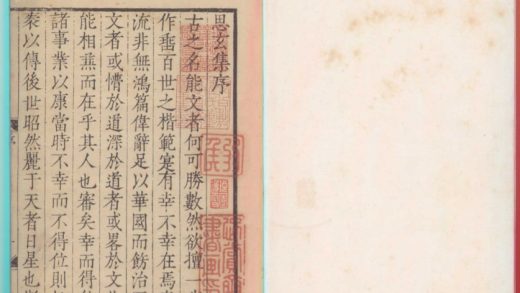 思玄集序
古之名能文者何可勝數然欲擅一
作垂百世之楷範寔有幸不幸在焉
流非無鴻篇偉辭足以華國而飾治
文者或懵於道深於道者或畧於文
能相兼而在乎其人也審矣幸而得
諸事業以康當時不幸而不得位則
以傳後世昭然麗于天者日星也